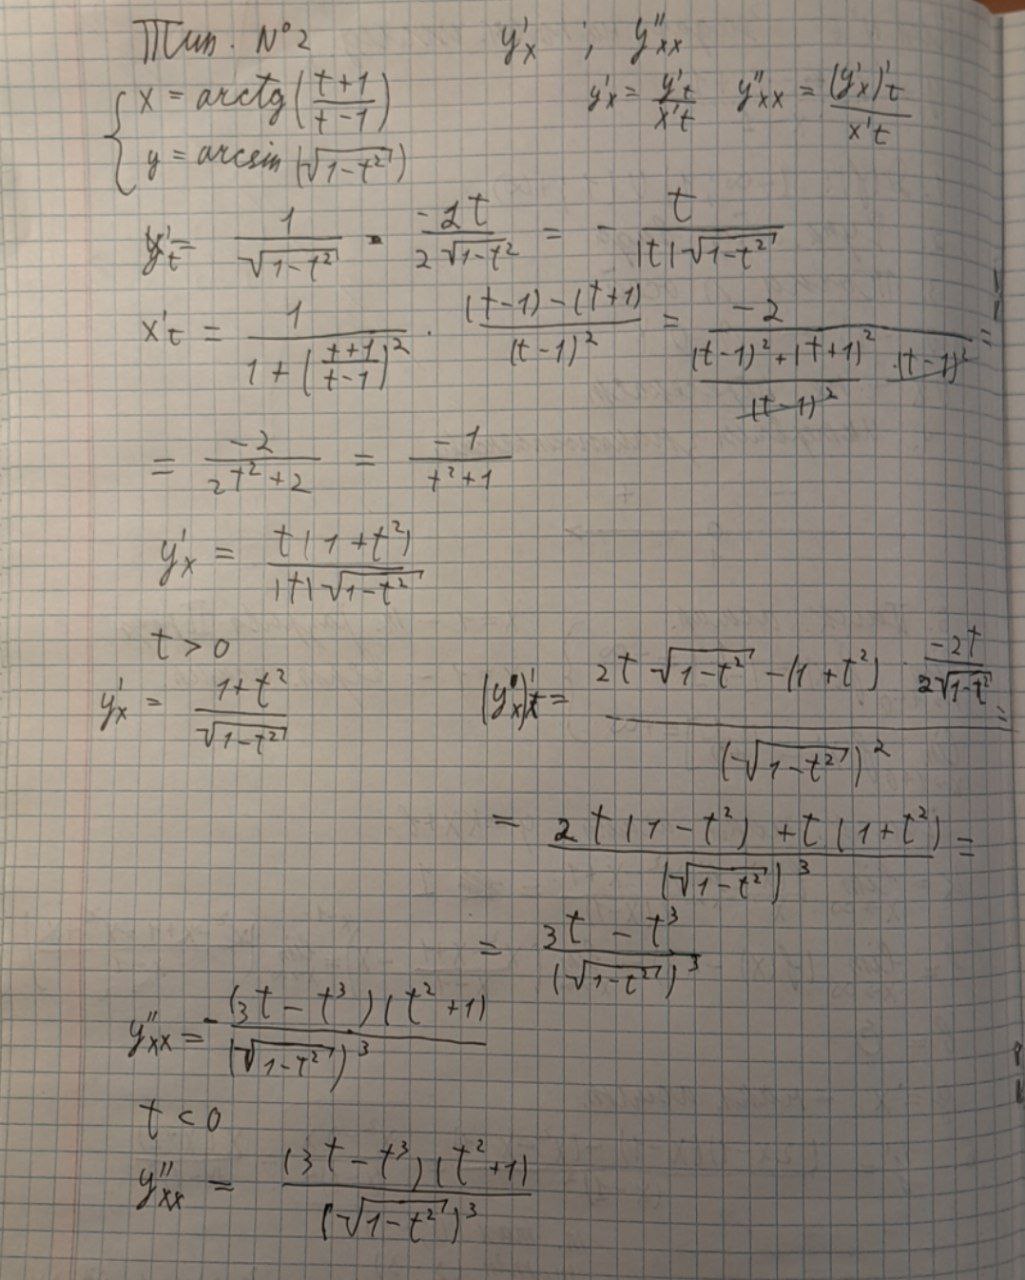 Тип. №2 y'ₓ ; y''ₓₓ
{ x = arctg((t+1)/(t-1)) y'ₓ = y't/x't y''ₓₓ = (y'ₓ)'t/x't
y = arcsin(√(1-t²))
y't = 1/√(1-t²) · (-2t)/(2√(1-t²)) = - t/(|t|√(1-t²))
x't = 1/(1+((t+1)/(t-1))²) · ((t-1)-(t+1))/(t-1)² = -2/(((t-1)²+(t+1)²)/(t-1)² · (t-1)²) =
= -2/(2t²+2) = -1/(t²+1)
y'ₓ = t(1+t²)/(|t|√(1-t²))
t > 0
y'ₓ = (1+t²)/√(1-t²) (y'ₓ)'t = (2t√(1-t²) - (1+t²) · (-2t)/(2√(1-t²)))/(√(1-t²))² =
= (2t(1-t²) + t(1+t²))/(√(1-t²))³ =
= (3t - t³)/(√(1-t²))³
y''ₓₓ = - (3t - t³)(t²+1)/(√(1-t²))³
t < 0
y''ₓₓ = (3t - t³)(t²+1)/(√(1-t²))³